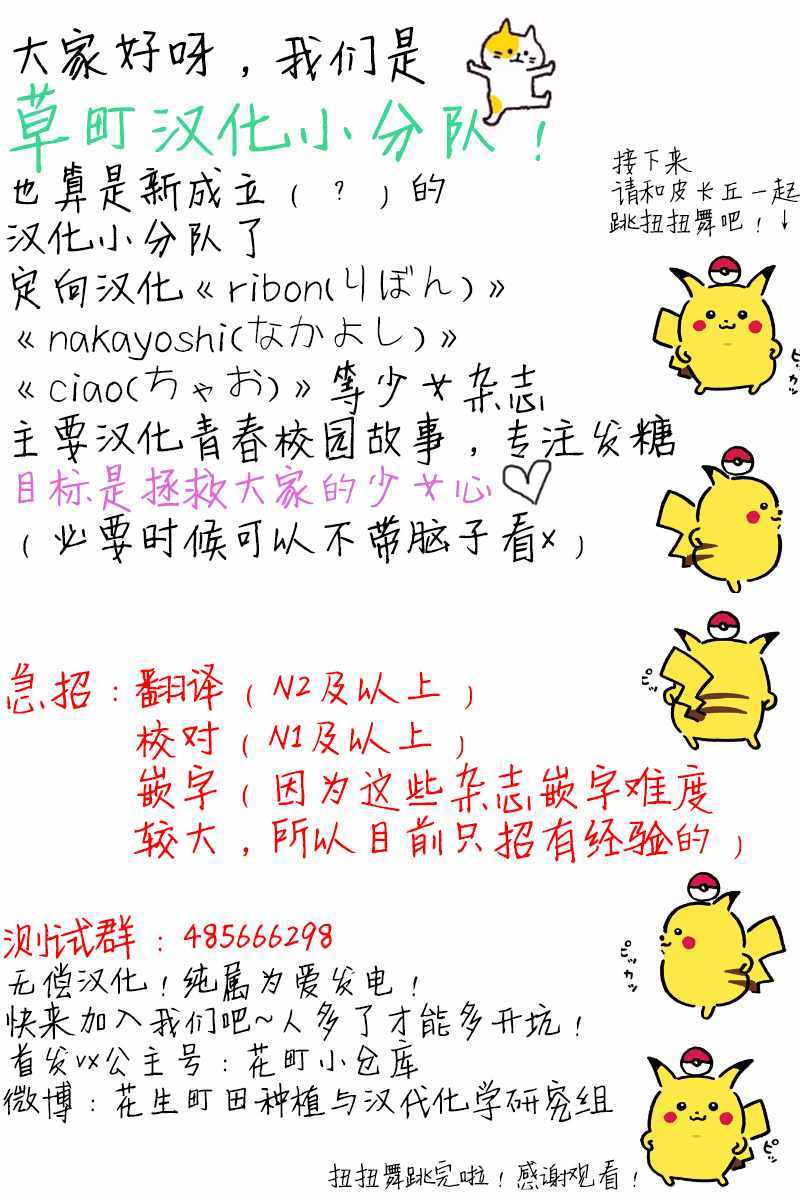 大家好呀，我们是
草町汉化小分队！
也算是新成立（？）的
汉化小分队了
定向汉化《ribon(りぼん)》
《nakayoshi(なかよし)》
《ciao(ちゃお)》等少女杂志
主要汉化青春校园故事，专注发糖
目标是拯救大家的少女心
（必要时候可以不带脑子看x）
接下来
请和皮卡丘一起
跳扭扭舞吧！↓
ピカッ
急招：翻译（N2及以上）
校对（N1及以上）
嵌字（因为这些杂志嵌字难度
较大，所以目前只招有经验的）
ピッ
测试群：485666298
无偿汉化！纯属为爱发电！
快来加入我们吧~人多了才能多开坑！
首发vx公主号：花町小仓库
微博：花生町田种植与汉代化学研究组
ピカッ
ピッ
扭扭舞跳完啦！感谢观看！